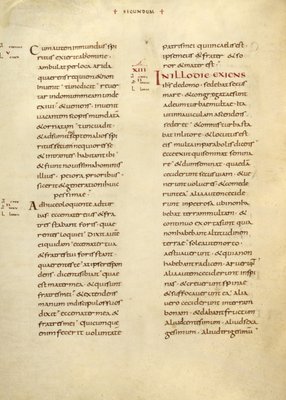 + SECUNDUM +
Cum autem inmundus spi
ritus exierit ab homine
ambulat per loca arida
quaerens requiem & non in
uenit · tunc dicit · reuer
tar in domum meam unde
exiui · & ueniens · inuenit
uacantem scopis mundata
& ornatam · tunc uadit
& adsumit septem alios spi
ritus secum nequiores se
& intrantes habitant ibi
& fiunt nouissima hominis
illius · peiora prioribus
sic erit & generationi huic
pessimae ·
Adhuc eo loquente ad tur
bas · ecce mater eius & fra
tres stabant foris quae
rentes loqui ei · Dixit autem ei
quidam · ecce mater tua
& fratres tui foris stant
quaerentes te · at ipse respon
dens · dicenti sibi ait · quae
est mater mea · & qui sunt
fratres mei · & extendens
manum in discipulos suos
dixit · ecce mater mea &
fratres mei · Quicumque
enim fecerit uoluntate
patris mei qui in caelis est
ipse meus & frater & so
ror & mater est ·
XIII
IN ILLO DIE EXIENS
ihs de domo · sedebat secus
mare · & congregatae sunt
ad eum turbae multae · ita ut
in nauiculam ascendens
sederet · & omnis turba stabat
in litore · & locutus est
eis multa in parabolis dicens
ecce exiit qui seminat semina
re · & dum seminat · quaeda
ceciderunt secus uiam · & ue
nerunt uolucres & comede
runt ea · alia autem cecide
runt in petrosa · ubi non ha
bebant terram multam · &
continuo exorta sunt quia
non habebant altitudinem
terrae · sole autem orto
aestuauerunt · & quia non ha
bebant radicem · aruerunt
alia autem ceciderunt in spi
nas · & creuerunt spinae
& suffocauerunt ea · alia
uero ceciderunt in terram
bonam · & dabant fructum
aliud centesimum · aliud sexa
gesimum · aliud tricesimum